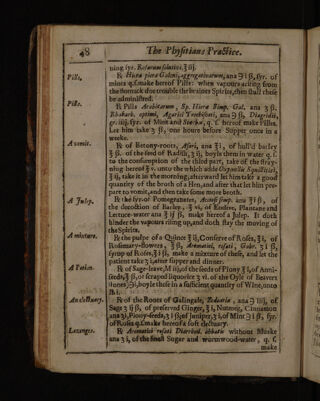 48 The Physitians Practice.
ning syr. Rosarum solutive, ℥iij.
Pills, ℞ Hiera picra Galeni, aggregativarum, ana ℈i ß, syr. of
mints q.s. make hereof Pills: when vapours arising from
the stomack doe trouble the braines Spirits, then shall these
be administred.
Pills. ℞ Pills Arabicarum, Sp. Hieræ Simp. Gal. ana ʒ ß.
Rhabarb. optimi, Agarici Trochiscati, ana ℈ ß, Diagridii,
gr. iiij. syr. of Mint and q. s. hereof make Pilles.
Let him take ʒ ß, one houre before Supper once in a
weeke.
A vomit. ℞ of Betony-roots, Asari, ana ℥i, of hull'd barley
℥ ß. of the seed of Radish, ʒ ij, boyle them in water q. s.
to the consumption of the third part, take of the
ning hereof ℥ v. unto the which adde Oxymellis Squillitici,
℥ ij, take it in the morning, afterward let him take a good
quantity of the broth of a Hen, and after that let him pre-
pare to vomit, and then take some more broth.
A Julep. ℞ the syr. of Pomegranates, Acetosi simp. ana ℥i ß, of
the decoction of Barley, ℥ vi, of Endive, Plantane and
Lettuce-water ana ℥ ij ß, make hereof a Julep. It doth
hinder the vapours rising up, and doth stay the moving of
the Spirits.
A mixture. ℞ the pulpe of a Quince ℥ iij, Conserve of Roses, ℥i, of
Rosemary-flowers, ℥ ß, Aromatici, rosati, Gabr. ʒi ß,
syrup of Roses, ℥i ß, make a mixture of these, and let the
patient take ʒ i, after supper and dinner.
A Potion. ℞ of Sage-leaves M iiij, of the seeds of Piony ℥ i, of Anni-
seeds, ℥ ß, of scraped liquorice ʒ vi. of the Oyle of Beavers
stones, ℈i, boyle these in a sufficient quantity of Wine, unto
lb i.
An electuary. ℞ of the Roots of Galingale, Zedoariæ, ana ℈ iiij, of
Sage ʒ ij ß, of preserved Ginger, ℥ i, Nutmeg, Cinnamon
ana ʒi, Piony-seeds, ʒ i ß, of Juniper, ʒ i, of Mint ℈i ß, syr.
of Roses q.s. make hereof a soft electuary.
Lozenges. ℞ Aromatici rosati Diarrhod. abbatis without Muske
ana ʒ i, of the finest Sugar and wormwood-water, q. s.
make